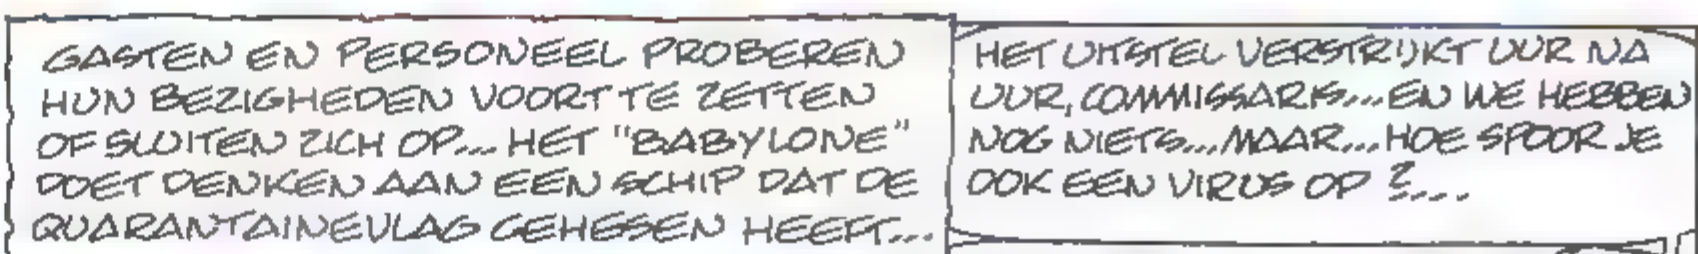 GASTEN EN PERSONEEL PROBEREN
HUN BEZIGHEDEN VOORT TE ZETTEN
OF SLUITEN ZICH OP... HET "BABYLONE"
DOET DENKEN AAN EEN SCHIP DAT DE
QUARANTAINEVLAG GEHESEN HEEFT...
HET UITSTEL VERSTRIJKT UUR NA
UUR, COMMISSARIS... EN WE HEBBEN
NOG NIETS... MAAR... HOE SPOOR JE
OOK EEN VIRUS OP ?...